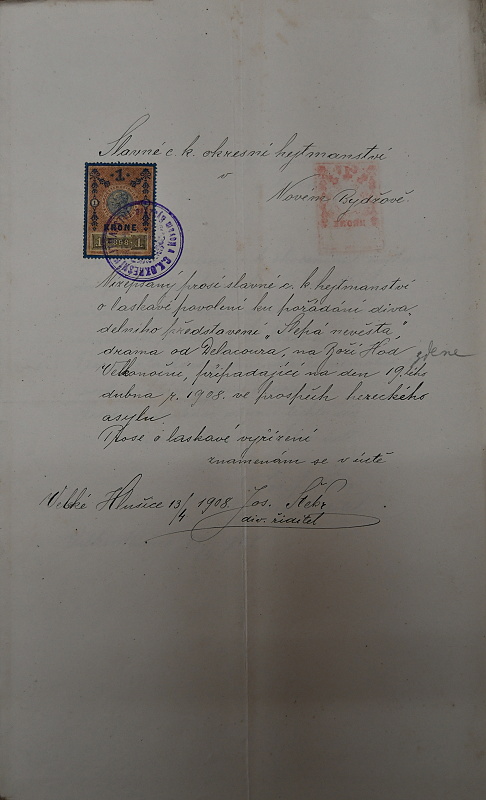 Slavné c. k. okresní hejtmanství
v
Novém Bydžově.
1
KRONE
1898
KRONE
Nížepsaný prosí slavné c. k. hejtmanství
o laskavé povolení ku pořádání diva-
delního představení „Slepá nevěsta"
drama od Delacoura, na Boží Hod
Velkonoční, připadající na den 19. tého
dubna r. 1908. ve prospěch hereckého
asylu.
Prose o laskavé vyřízení
znamenám se v úctě
Velké Hlušice 13/4 1908. Jos. Štekr
div. ředitel